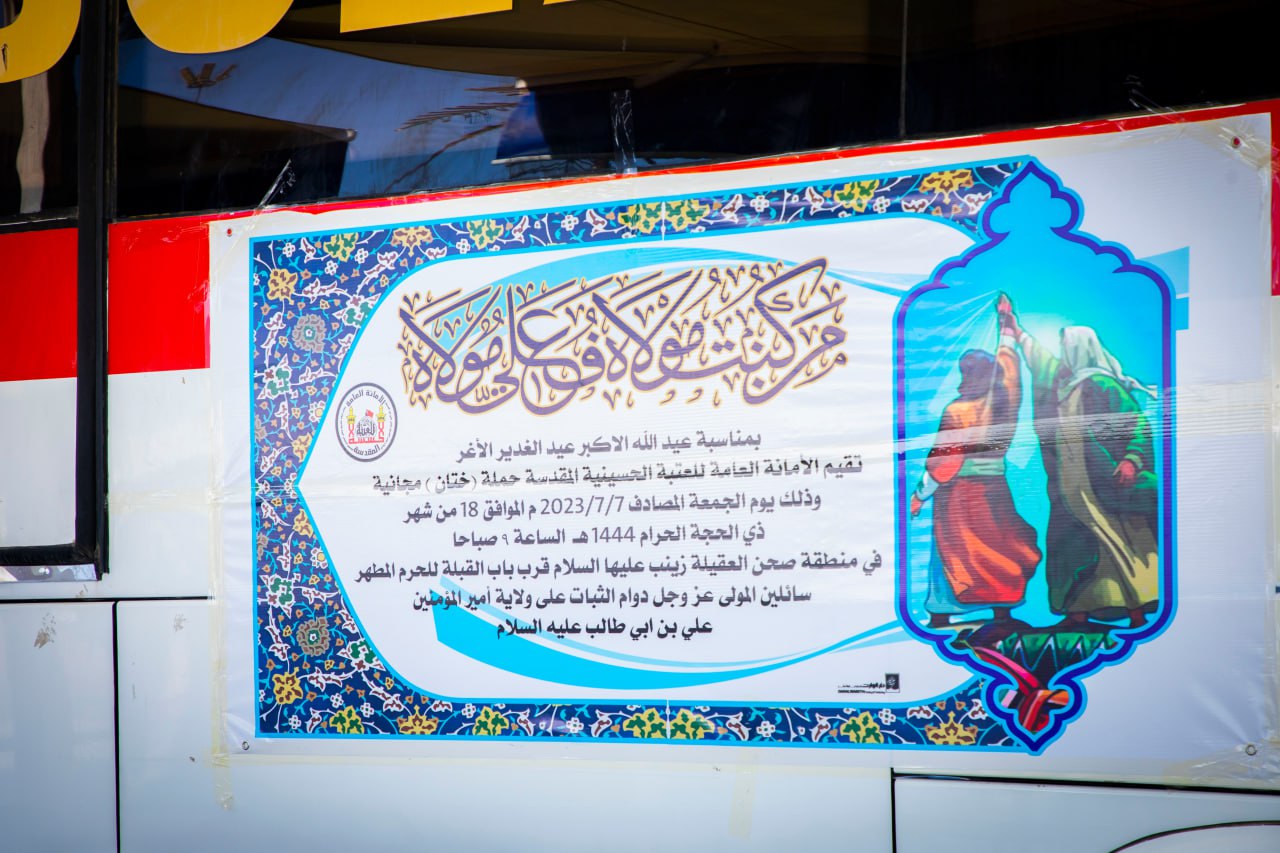 من كنت مولاه فعلي مولاه
الأمانة العامة
للعتبة
الحسينية
المقدسة
بمناسبة عيد الله الاكبر عيد الغدير الأغر
تقيم الأمانة العامة للعتبة الحسينية المقدسة حملة (ختان) مجانية
وذلك يوم الجمعة المصادف 2023/7/7 م الموافق 18 من شهر
ذي الحجة الحرام 1444 هـ الساعة ٩ صباحا
في منطقة صحن العقيلة زينب عليها السلام قرب باب القبلة للحرم المطهر
سائلين المولى عز وجل دوام الثبات على ولاية أمير المؤمنين
علي بن ابي طالب عليه السلام